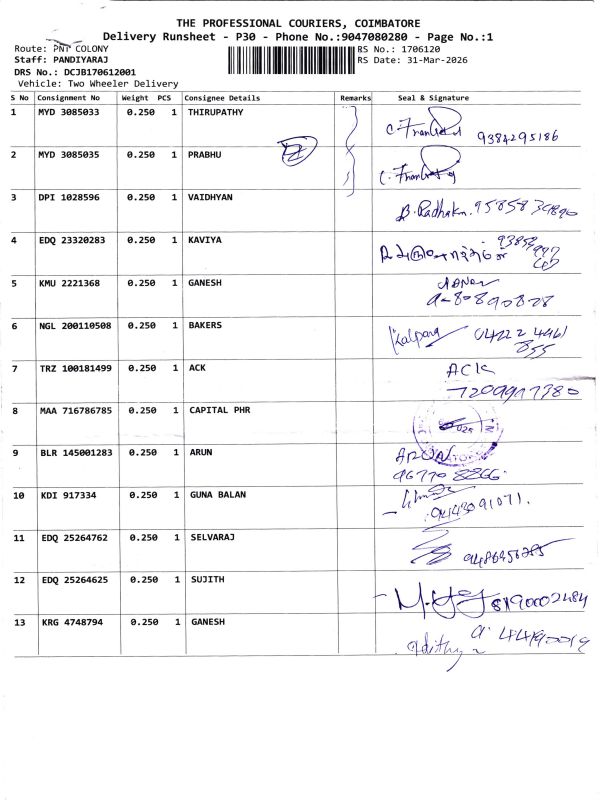 THE PROFESSIONAL COURIERS, COIMBATORE
Delivery Runsheet - P30 - Phone No.:9047080280 - Page No.:1
Route: PNT COLONY
RS No.: 1706120
Staff: PANDIYARAJ
RS Date: 31-Mar-2026
DRS No.: DCJB170612001
Vehicle: Two Wheeler Delivery
S No Consignment No Weight PCS Consignee Details Remarks Seal & Signature
1 MYD 3085033 0.250 1 THIRUPATHY 9384295186
2 MYD 3085035 0.250 1 PRABHU
3 DPI 1028596 0.250 1 VAIDHYAN
4 EDQ 23320283 0.250 1 KAVIYA
5 KMU 2221368 0.250 1 GANESH
6 NGL 200110508 0.250 1 BAKERS Kalpana 04222 4461
855
7 TRZ 100181499 0.250 1 ACK ACK
8 MAA 716786785 0.250 1 CAPITAL PHR
9 BLR 145001283 0.250 1 ARUN ARUN
96770 8266
10 KDI 917334 0.250 1 GUNA BALAN
11 EDQ 25264762 0.250 1 SELVARAJ
12 EDQ 25264625 0.250 1 SUJITH 8190002484
13 KRG 4748794 0.250 1 GANESH